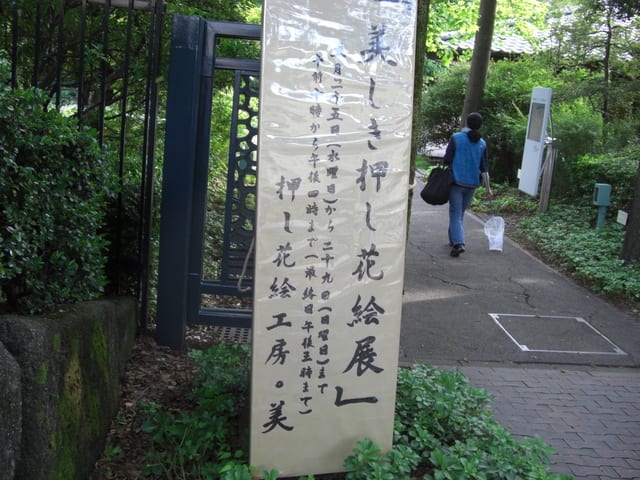 美しき押し花絵展」
月二十五日(水曜日)から二十九日(日曜日)まで
午前十時から午後四時まで(最終日午後三時まで)
押し花絵工房。美